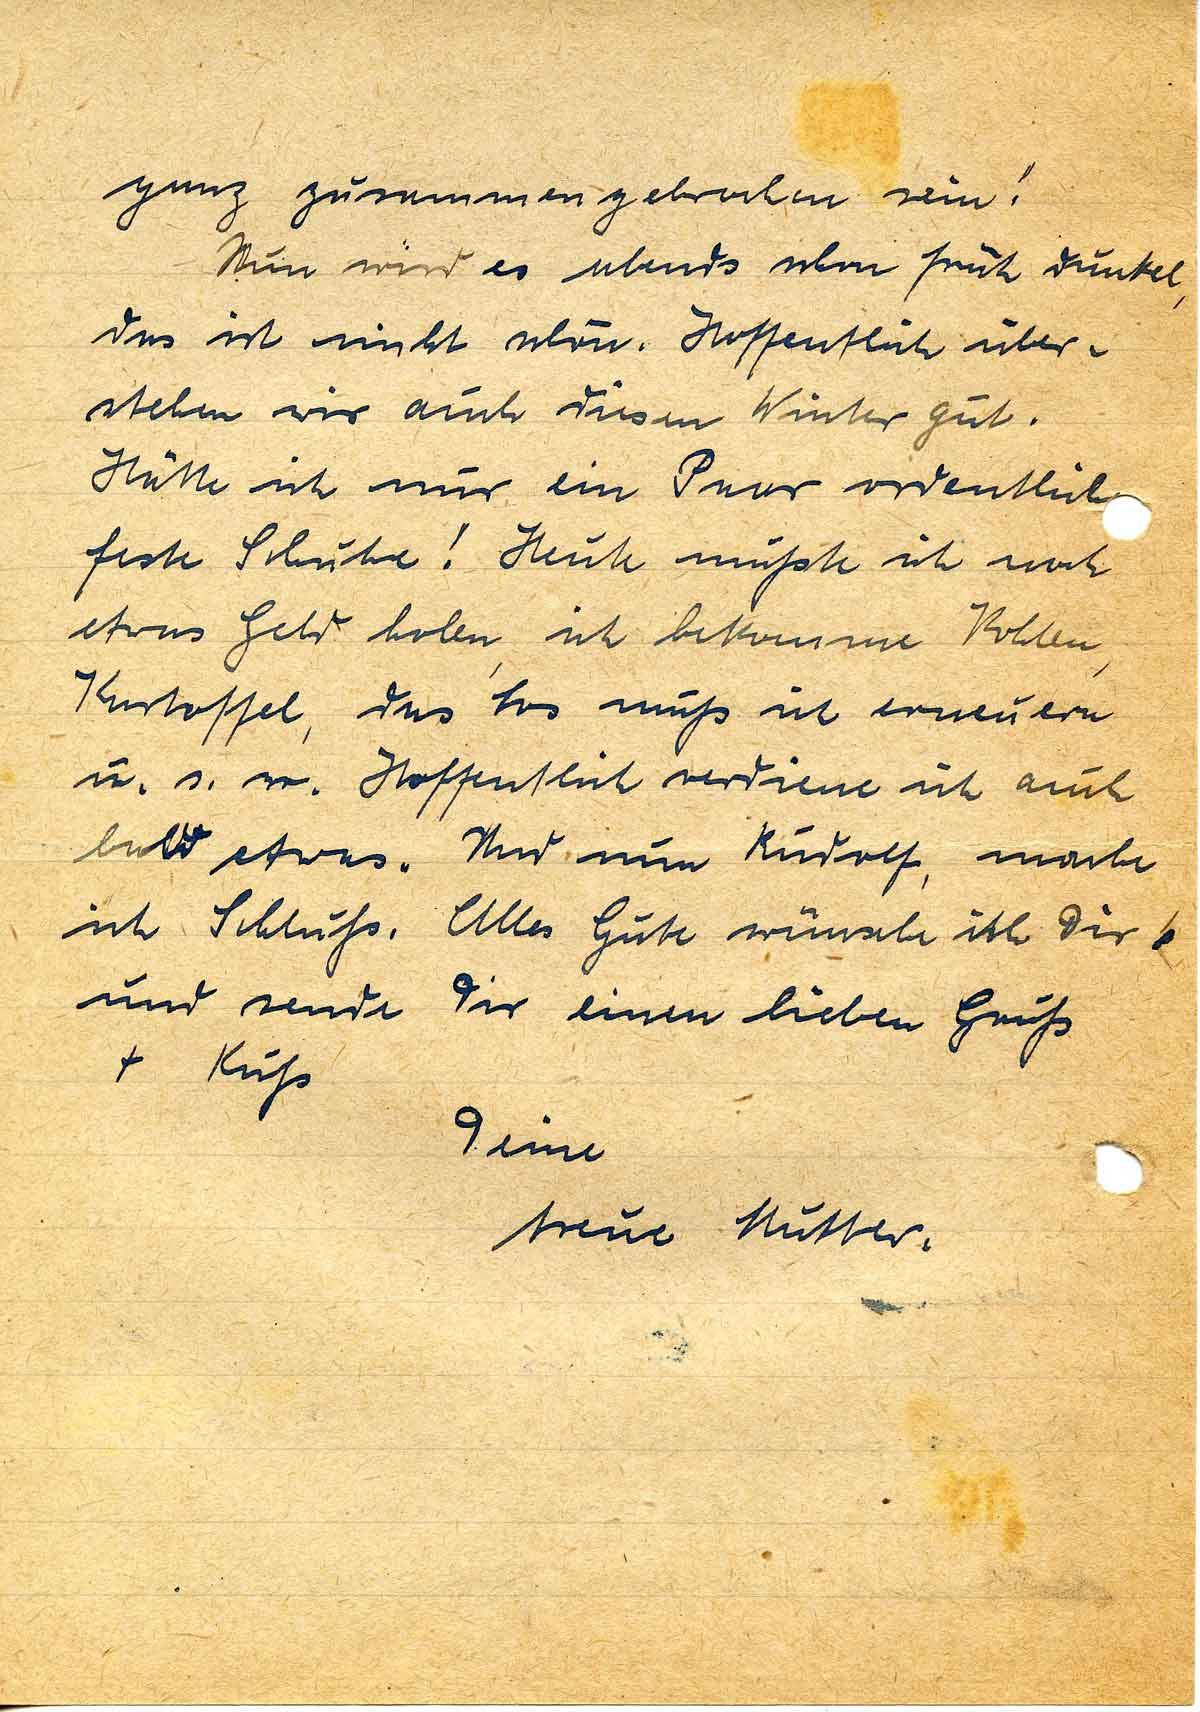 ganz zusammengebrochen sein!
Nun wird es abends schon früh dunkel,
das ist nicht schön. Hoffentlich über-
stehen wir auch diesen Winter gut.
Hätte ich nur ein Paar ordentlich
feste Schuhe! Heute mußte ich noch
etwas Geld holen, ich bekomme Kohlen,
Kartoffel, das Los muß ich erneuern
u. s. w. Hoffentlich verdiene ich auch
bald etwas. Und nun Rudolf, mache
ich Schluß. Alles Gute wünsche ich Dir
und sende Dir einen lieben Gruß
+ Kuß
Deine
treue Mutter.